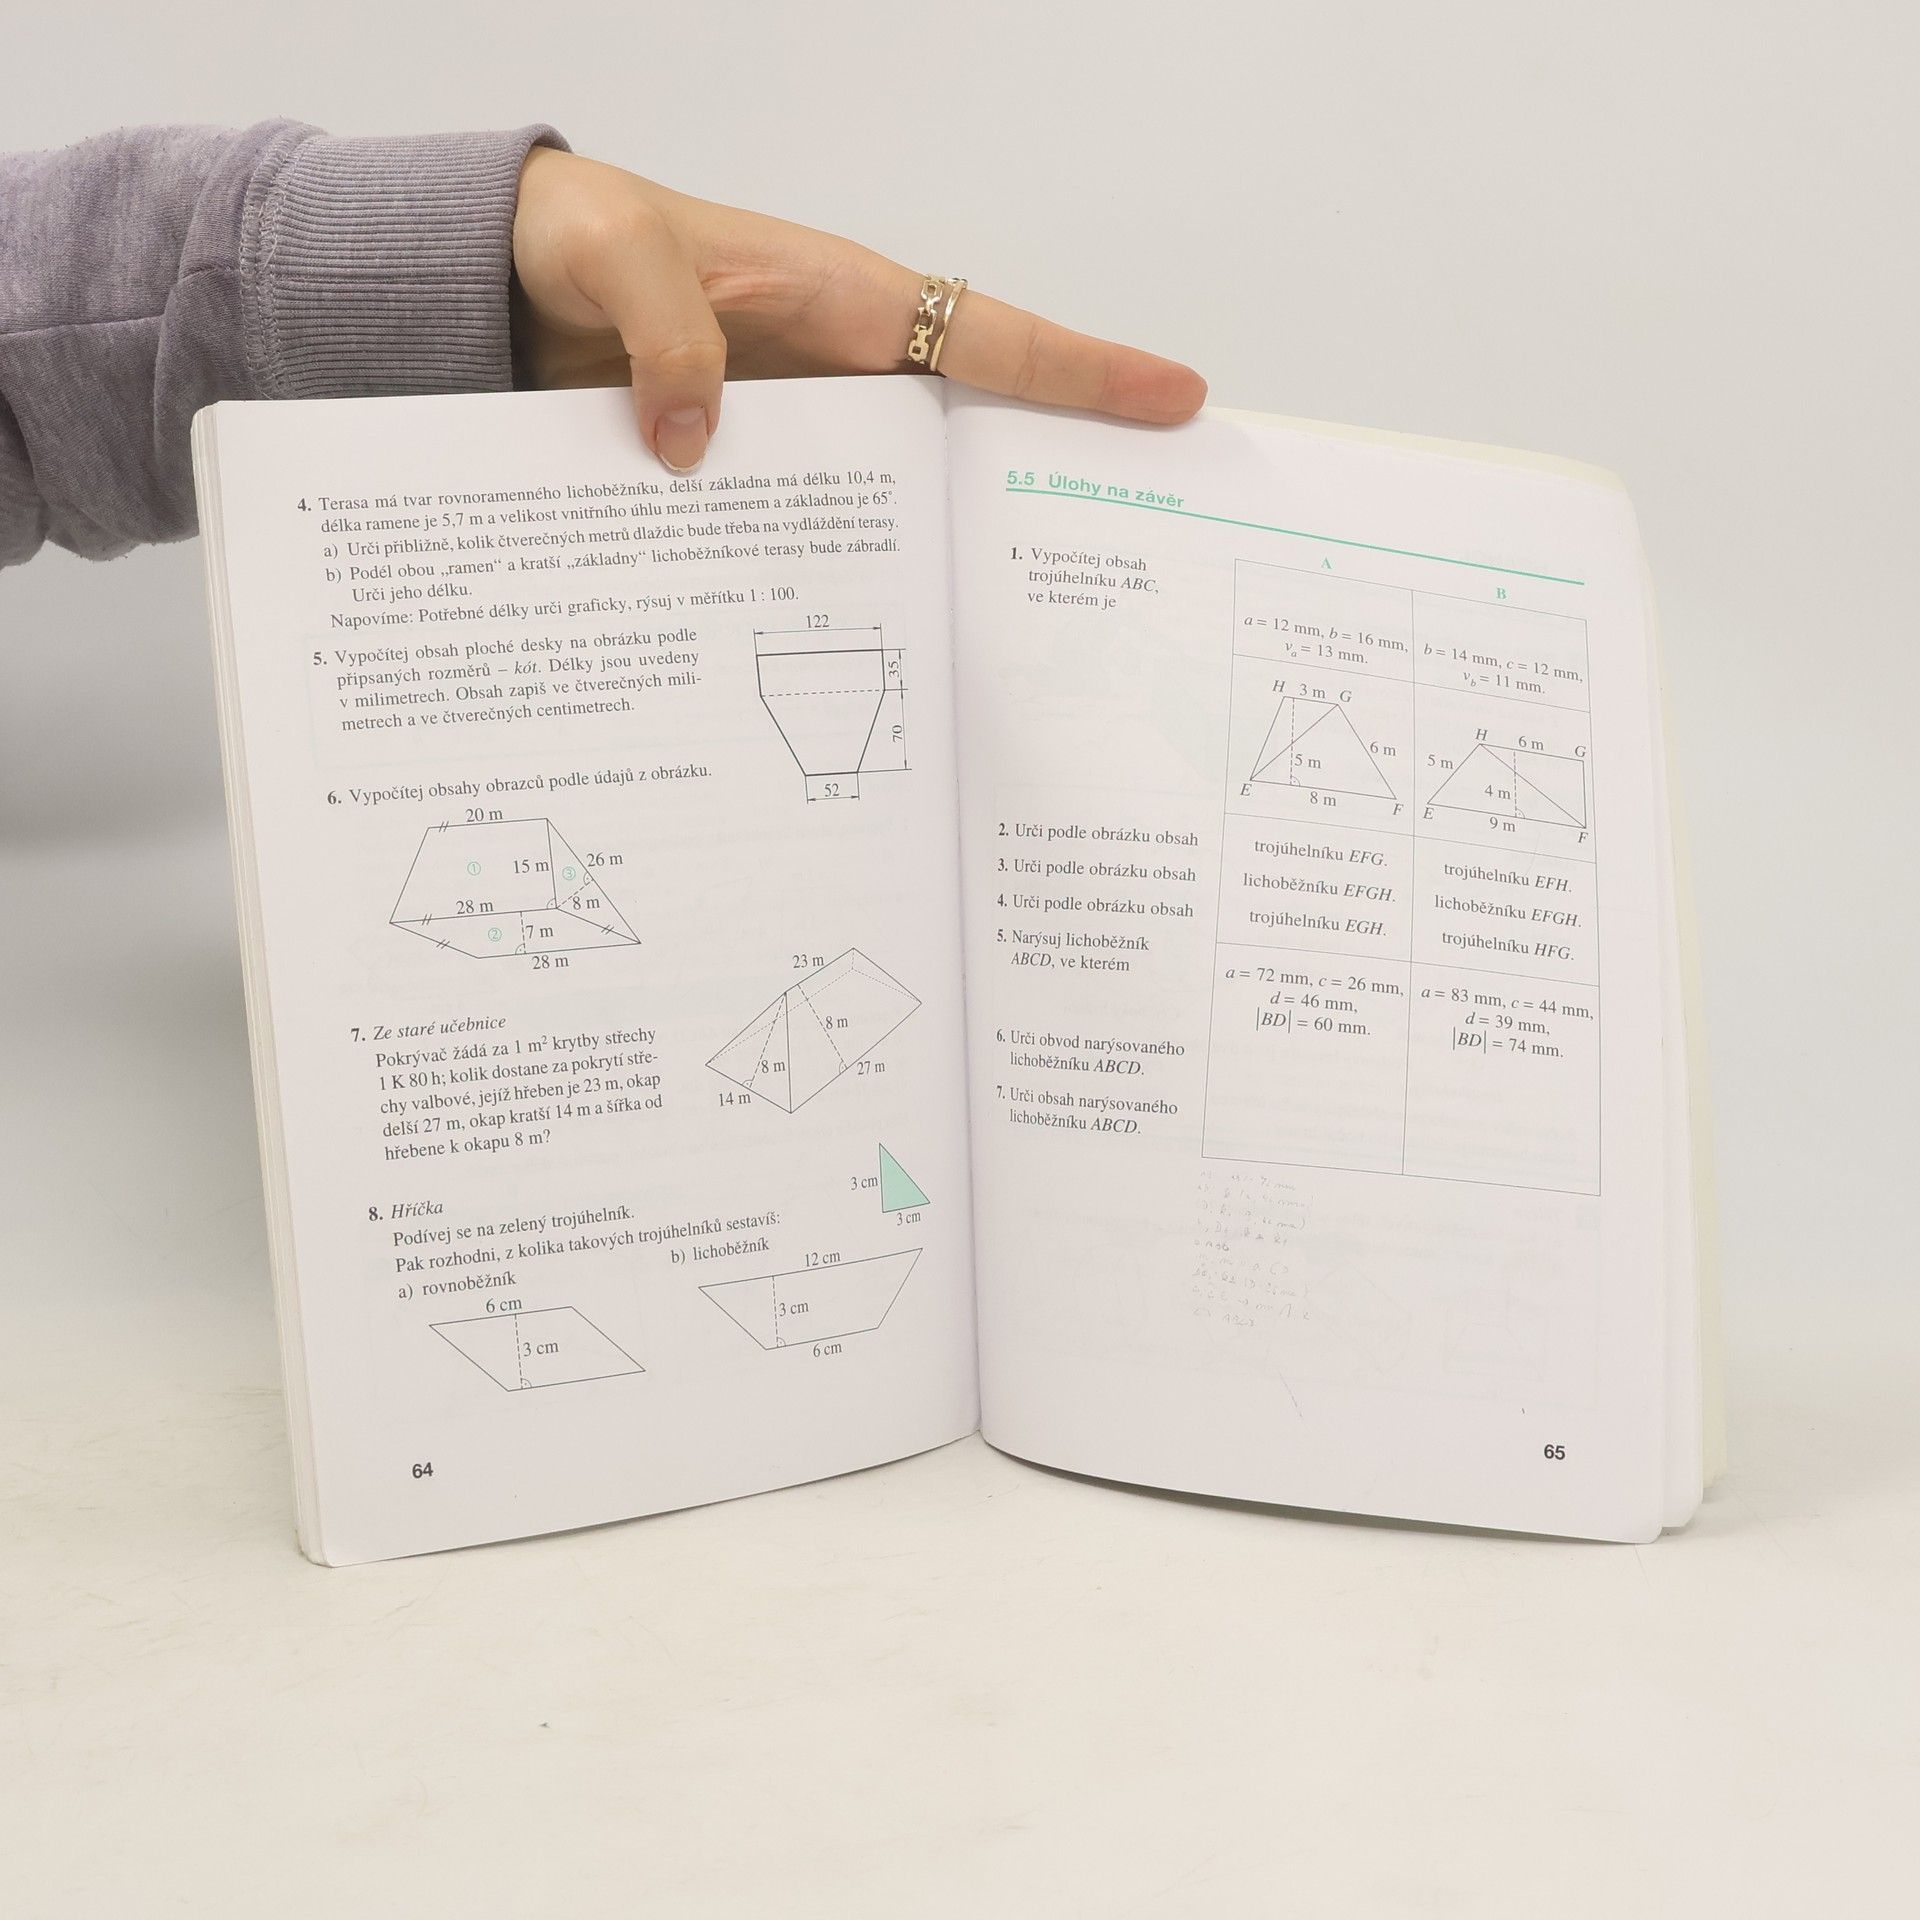 4. Terasa má tvar rovnoramenného lichoběžníku, delší základna má délku 10,4 m,
délka ramene je 5,7 m a velikost vnitřního úhlu mezi ramenem a základnou je 65°.
a) Urči přibližně, kolik čtverečných metrů dlaždic bude třeba na vydláždění terasy.
b) Podél obou „ramen“ a kratší „základny“ lichoběžníkové terasy bude zábradlí.
Urči jeho délku.
Napovíme: Potřebné délky urči graficky, rýsuj v měřítku 1 : 100.
5. Vypočítej obsah ploché desky na obrázku podle
připsaných rozměrů – kót. Délky jsou uvedeny
v milimetrech. Obsah zapiš ve čtverečných mili-
metrech a ve čtverečných centimetrech.
122
35
70
52
6. Vypočítej obsahy obrazců podle údajů z obrázku.
20 m
① 15 m ③ 26 m
28 m 8 m
② 7 m
28 m
7. Ze staré učebnice
Pokrývač žádá za 1 m² krytby střechy
1 K 80 h; kolik dostane za pokrytí stře-
chy valbové, jejíž hřeben je 23 m, okap
delší 27 m, okap kratší 14 m a šířka od
hřebene k okapu 8 m?
23 m
8 m
8 m
27 m
14 m
8. Hříčka
Podívej se na zelený trojúhelník.
Pak rozhodni, z kolika takových trojúhelníků sestavíš:
a) rovnoběžník
b) lichoběžník
3 cm
3 cm
6 cm
3 cm
12 cm
3 cm
6 cm
64
5.5 Úlohy na závěr
A
B
1. Vypočítej obsah
trojúhelníku ABC,
ve kterém je
a = 12 mm, b = 16 mm,
vₐ = 13 mm.
b = 14 mm, c = 12 mm,
v_b = 11 mm.
H 3 m G
6 m
5 m
E 8 m F
H 6 m G
5 m
4 m
E 9 m F
2. Urči podle obrázku obsah
trojúhelníku EFG.
trojúhelníku EFH.
3. Urči podle obrázku obsah
lichoběžníku EFGH.
lichoběžníku EFGH.
4. Urči podle obrázku obsah
trojúhelníku EGH.
trojúhelníku HFG.
5. Narýsuj lichoběžník
ABCD, ve kterém
a = 72 mm, c = 26 mm,
d = 46 mm,
|BD| = 60 mm.
a = 83 mm, c = 44 mm,
d = 39 mm,
|BD| = 74 mm.
6. Urči obvod narýsovaného
lichoběžníku ABCD.
7. Urči obsah narýsovaného
lichoběžníku ABCD.
65